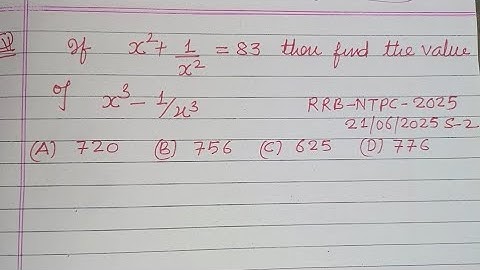 If x² + 1/x² = 83 then find the value
of x³ - 1/x³
RRB-NTPC-2025
21/06/2025 S-2
(A) 720 (B) 756 (C) 625 (D) 776